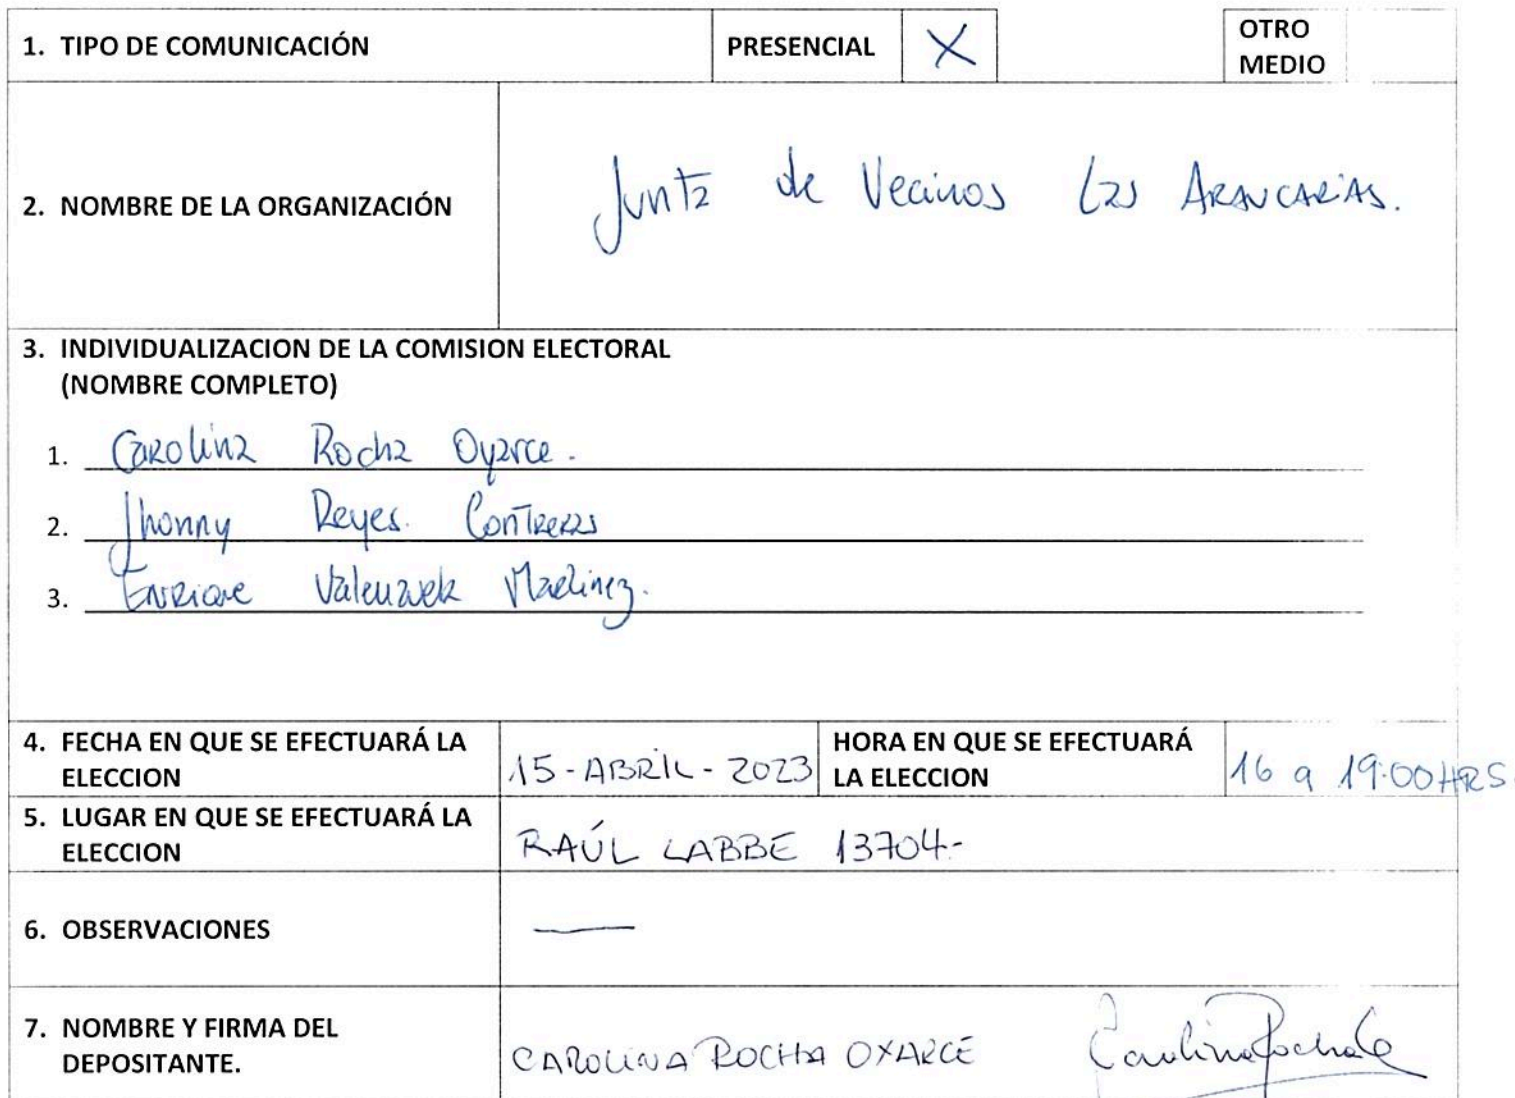 1. TIPO DE COMUNICACIÓN PRESENCIAL X OTRO MEDIO
2. NOMBRE DE LA ORGANIZACIÓN Junta de Vecinos Las ARAUCARIAS.
3. INDIVIDUALIZACION DE LA COMISION ELECTORAL
(NOMBRE COMPLETO)
1. Carolina Rocha Oyarce.
2. Jhonny Reyes. Contreras
3. Enrique Valenzuela Martinez.
4. FECHA EN QUE SE EFECTUARÁ LA ELECCION 15-ABRIL-2023 HORA EN QUE SE EFECTUARÁ LA ELECCION 16 a 19.00 HRS.
5. LUGAR EN QUE SE EFECTUARÁ LA ELECCION RAÚL LABBE 13704.-
6. OBSERVACIONES —
7. NOMBRE Y FIRMA DEL DEPOSITANTE. CAROLINA ROCHA OYARCE